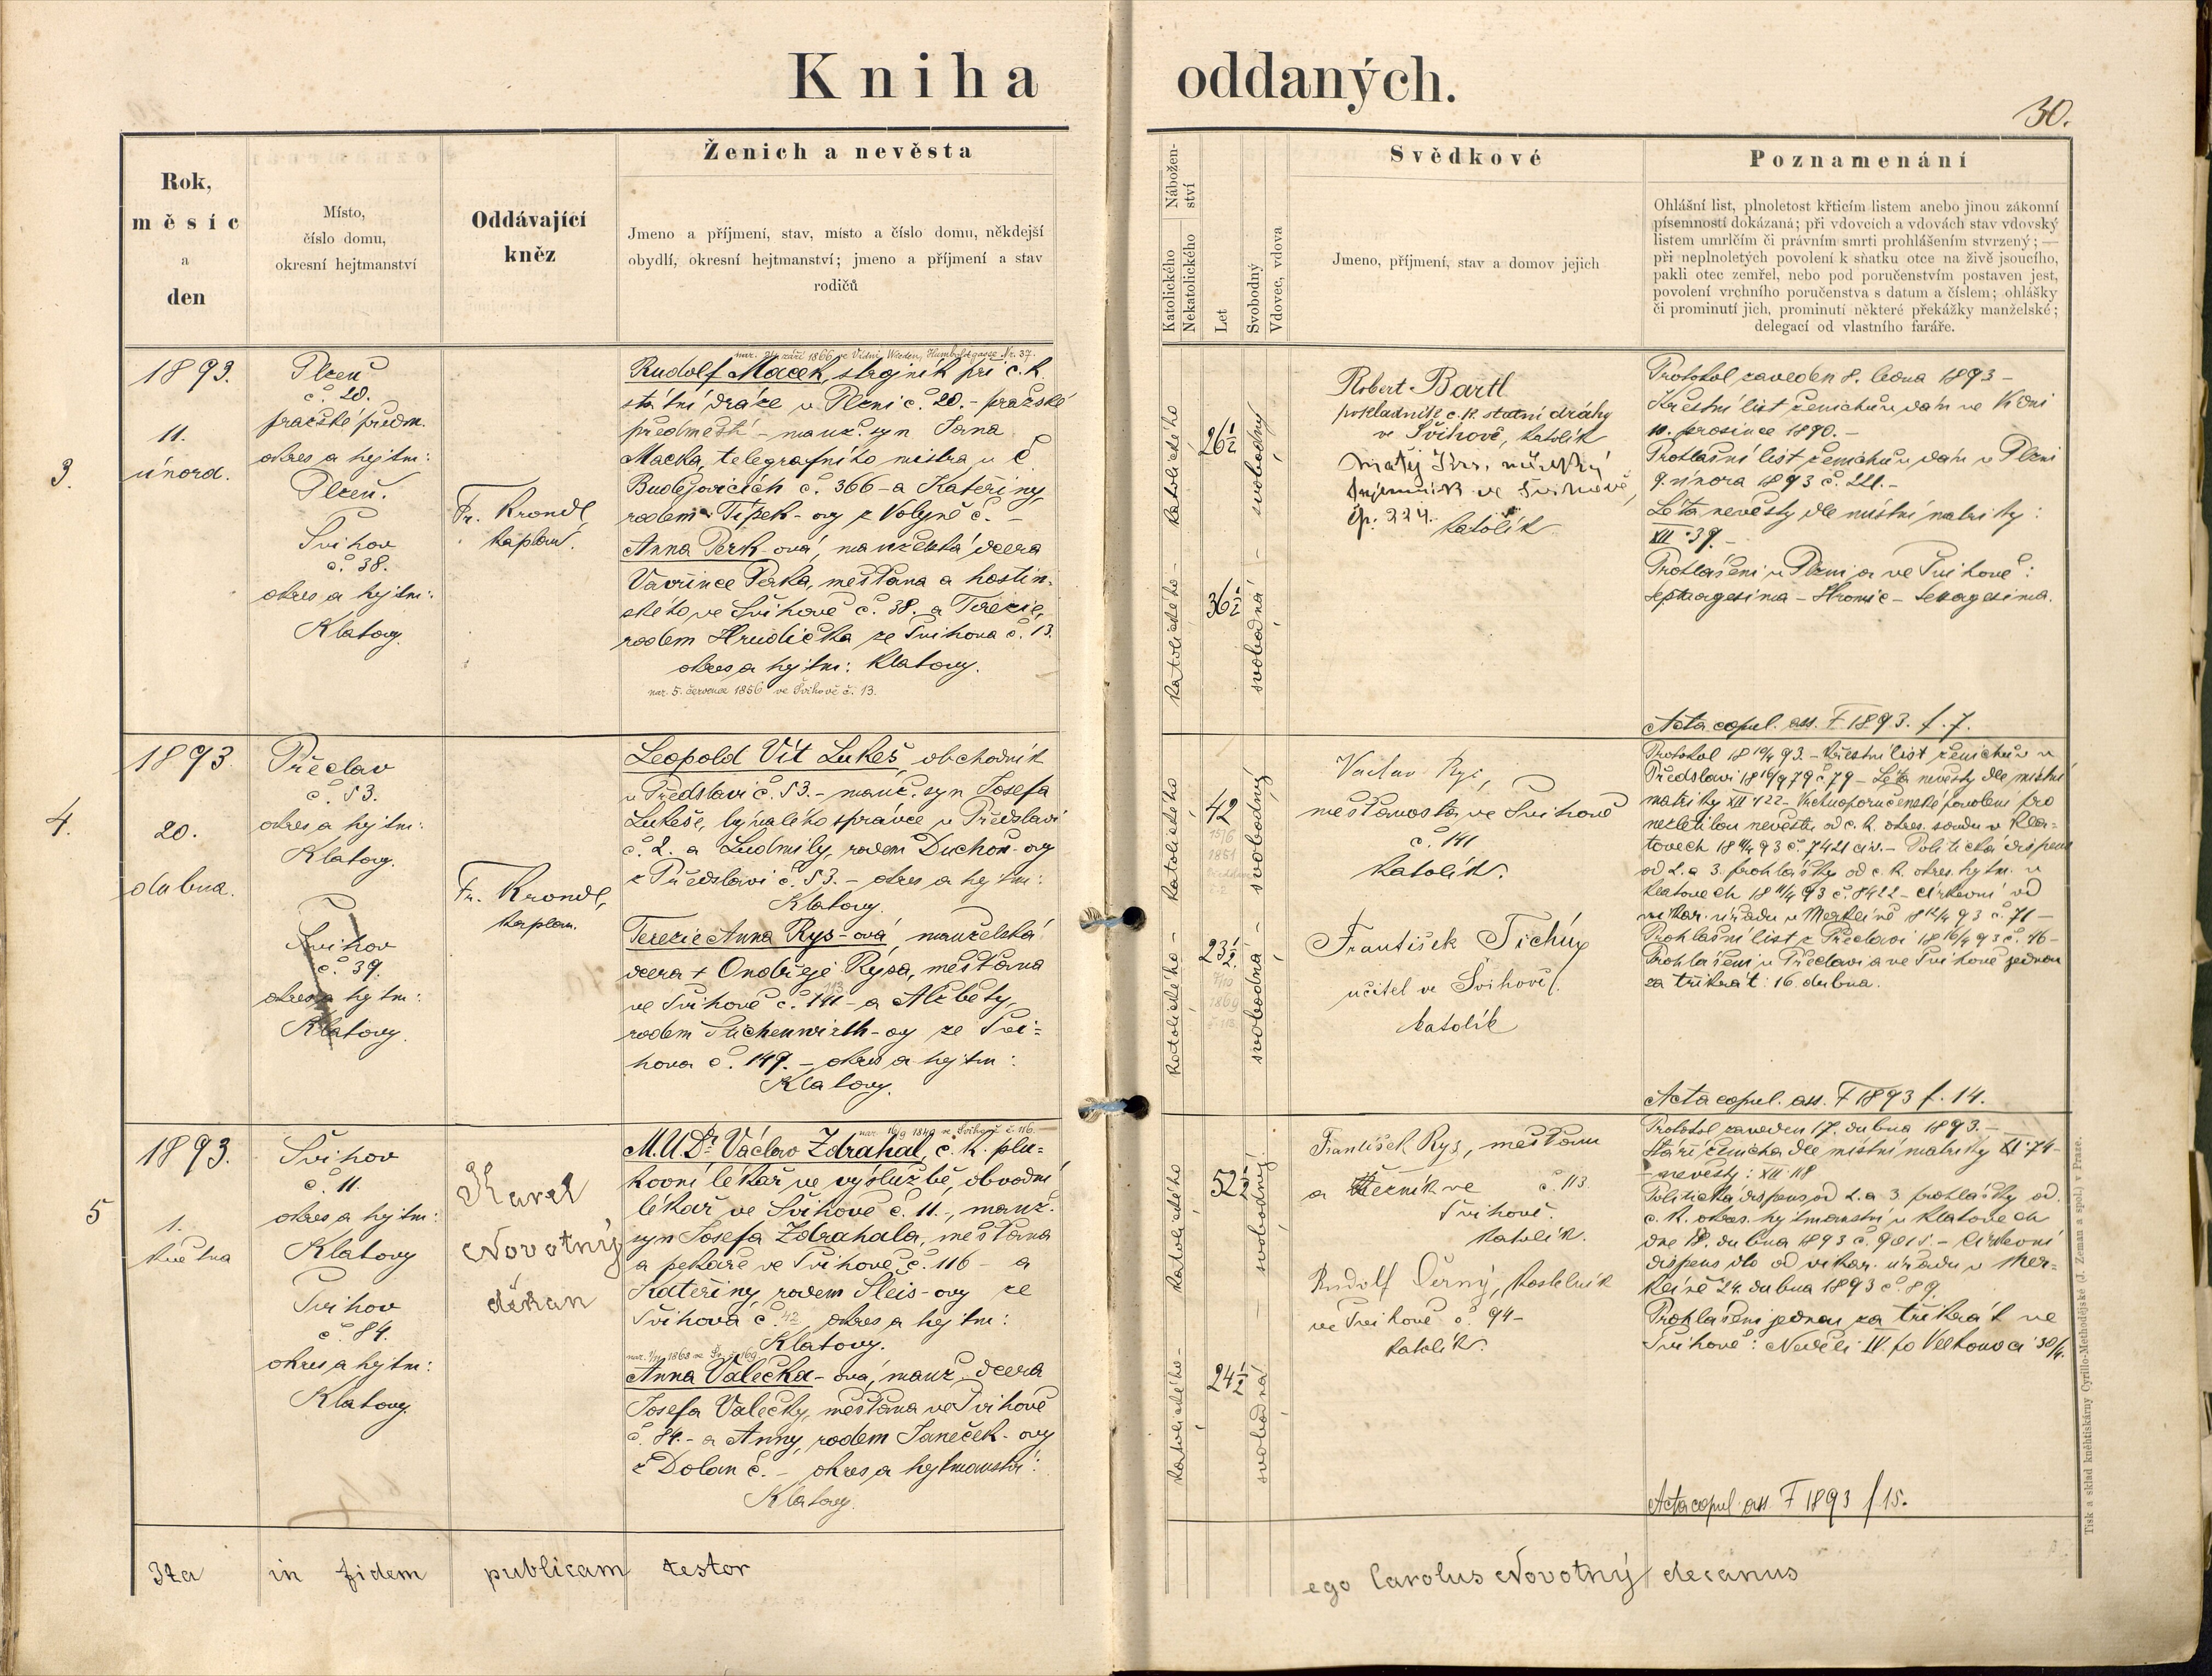 Kniha oddaných.
30.
Rok,
měsíc
a
den
Místo,
číslo domu,
okresní hejtmanství
Oddávající
kněz
Ženich a nevěsta
Jmeno a příjmení, stav, místo a číslo domu, někdejší
obydlí, okresní hejtmanství; jmeno a příjmení a stav
rodičů
Nábožen-
ství
Katolického
Nekatolického
Let
Svobodný
Vdovec, vdova
Svědkové
Jmeno, příjmení, stav a domov jejich
Poznamenání
Ohlášní list, plnoletost křticím listem anebo jinou zákonní
písemností dokázaná; při vdovcích a vdovách stav vdovský
listem umrlčím či právním smrti prohlášením stvrzený; —
při neplnoletých povolení k sňatku otce na živě jsoucího,
pakli otec zemřel, nebo pod poručenstvím postaven jest,
povolení vrchního poručenstva s datum a číslem; ohlášky
či prominutí jich, prominutí některé překážky manželské;
delegací od vlastního faráře.
3.
1893.
11.
února.
Plzeň
č. 20.
pražské předm.
okres a hejtm:
Plzeň.
Švihov
č. 38.
okres a hejtm:
Klatovy.
Fr. Krondl,
kaplan.
nar. září 1866 ve Vídni, Wieden, Humboldtgasse Nr. 37.
Rudolf Macek, strojník při c. k.
státní dráze v Plzni č. 20. - pražské
předměstí - manž. syn Jana
Macka, telegrafního mistra v Č.
Budějovicích č. 366 - a Kateřiny,
rodem Típek-ovy z Volyně č. -
Anna Perk-ová, manželská dcera
Vavřince Perka, měšťana a hostin-
ského ve Švihově č. 38. a Terezie,
rodem Hrudička ze Švihova č. 13.
okres a hejtm: Klatovy.
nar. 5. července 1856 ve Švihově č. 13.
katolického - katolického
26½
36½
svobodný
svobodná
Robert Bartl
pokladník c. k. statní dráhy
ve Švihově, katolík
Matěj
ve Švihově,
čp. 224.
katolík
Protokol zaveden 8. ledna 1893 -
Křestní list ženichův dán ve Vídni
10. prosince 1890. -
Prohlašní list ženichův dán v Plzni
9. února 1893 č. 221. -
Léta nevěsty dle místní matriky:
XII · 39. -
Prohlášeni v Plzni a ve Švihově:
Septuagesima - Hromic - Sexagesima.
Acta copul. ass. F 1893. f. 7.
4.
1893.
20.
dubna.
Přeclav
č. 53.
okres a hejtm:
Klatovy.
Švihov
č. 39.
okres a hejtm:
Klatovy.
Fr. Krondl,
kaplan.
Leopold Vít Lukeš, obchodník
v Předslavi č. 53. - manž. syn Josefa
Lukeše, bývalého správce v Předslavi
č. 2. a Ludmily, rodem Duchoň-ovy
z Předslavi č. 53. - okres a hejtm:
Klatovy.
Terezie Anna Rys-ová, manželská
dcera + Ondřeje Rysa, měšťana
ve Švihově č. 141 - a Alžběty,
113
rodem Suchenwirth-ovy ze Švi-
hova č. 149. - okres a hejtm:
Klatovy.
katolického - katolického
42
15/6
1851
23½
1869
svobodný
svobodná
Václav Rys,
měšťanosta ve Švihově
č. 141
katolík.
František Tichý
učitel ve Švihově.
katolík
Protokol 18 10/4 93. - Křestní list ženichův v
Předslavi 18 16/9 79 č. 79 - Léta nevěsty dle místní
matriky XII 122 - Vrchnoporučenské povolení pro
nezletilou nevěstu od c. k. okres. soudu v Kla-
tovech 18 93 č. 7421 civ. - Politická dispens
od 2. a 3. prohlášky od c. k. okres. hejtm. v
Klatovech 18 11/4 93 č. 8422 - Církevní od
vikar. úřadu v Merklíně 18 12/4 93 č. 71 -
Prohlašní list z Přeclavi 18 16/4 93 č. 46 -
Prohlášeni v Přeclavi a ve Švihově jednou
za třikrát: 16. dubna.
Acta copul. ass. F 1893 f. 14.
5
1893.
1.
května
Švihov
č. 11.
okres a hejtm:
Klatovy
Švihov
č. 84.
okres a hejtm:
Klatovy.
Karel
Novotný
děkan
nar. 16/9 1840 ve Švihově č. 116.
M.U.Dr. Václav Zdrahal, c. k. plu-
kovní lékař ve výslužbě, obvodní
lékař ve Švihově č. 11., manž.
syn Josefa Zdrahala, měšťana
a pekaře ve Švihově č. 116 - a
Kateřiny, rodem Sleis-ovy ze
Švihova č. 42, okres a hejtm:
Klatovy.
nar. 1868 ve Šv. č. 169.
Anna Valečka-ová, manž. dcera
Josefa Valečky, měšťana ve Švihově
č. 84. - a Anny, rodem Janeček-ovy
z Dolan č. - okres a hejtmanství:
Klatovy.
katolického - katolického
52½
24½
svobodný
svobodná
František Rys, měšťan
a řezník ve č. 113.
Švihově.
katolík.
Rudolf Černý, kostelník
ve Švihově č. 94 -
katolík.
Protokol zaveden 17. dubna 1893. -
Stáří ženicha dle místní matriky XI · 74 -
- nevěsty: XII 118
Politická dispens od 2. a 3. prohlášky od
c. k. okres. hejtmanství v Klatovech
dne 18. dubna 1893 č. 9015. - Církevní
dispens dto od vikar. úřadu v Mer-
klíně 24. dubna 1893 č. 89.
Prohlášeni jednou za třikrát ve
Švihově: Neděli IV. po Velkonoci 30/4.
Acta copul. ass. F 1893 f 15.
Ita in fidem publicam testor
ego Carolus Novotný decanus
Tisk a sklad kněhtiskárny Cyrillo-Methodějské (J. Zeman a spol.) v Praze.